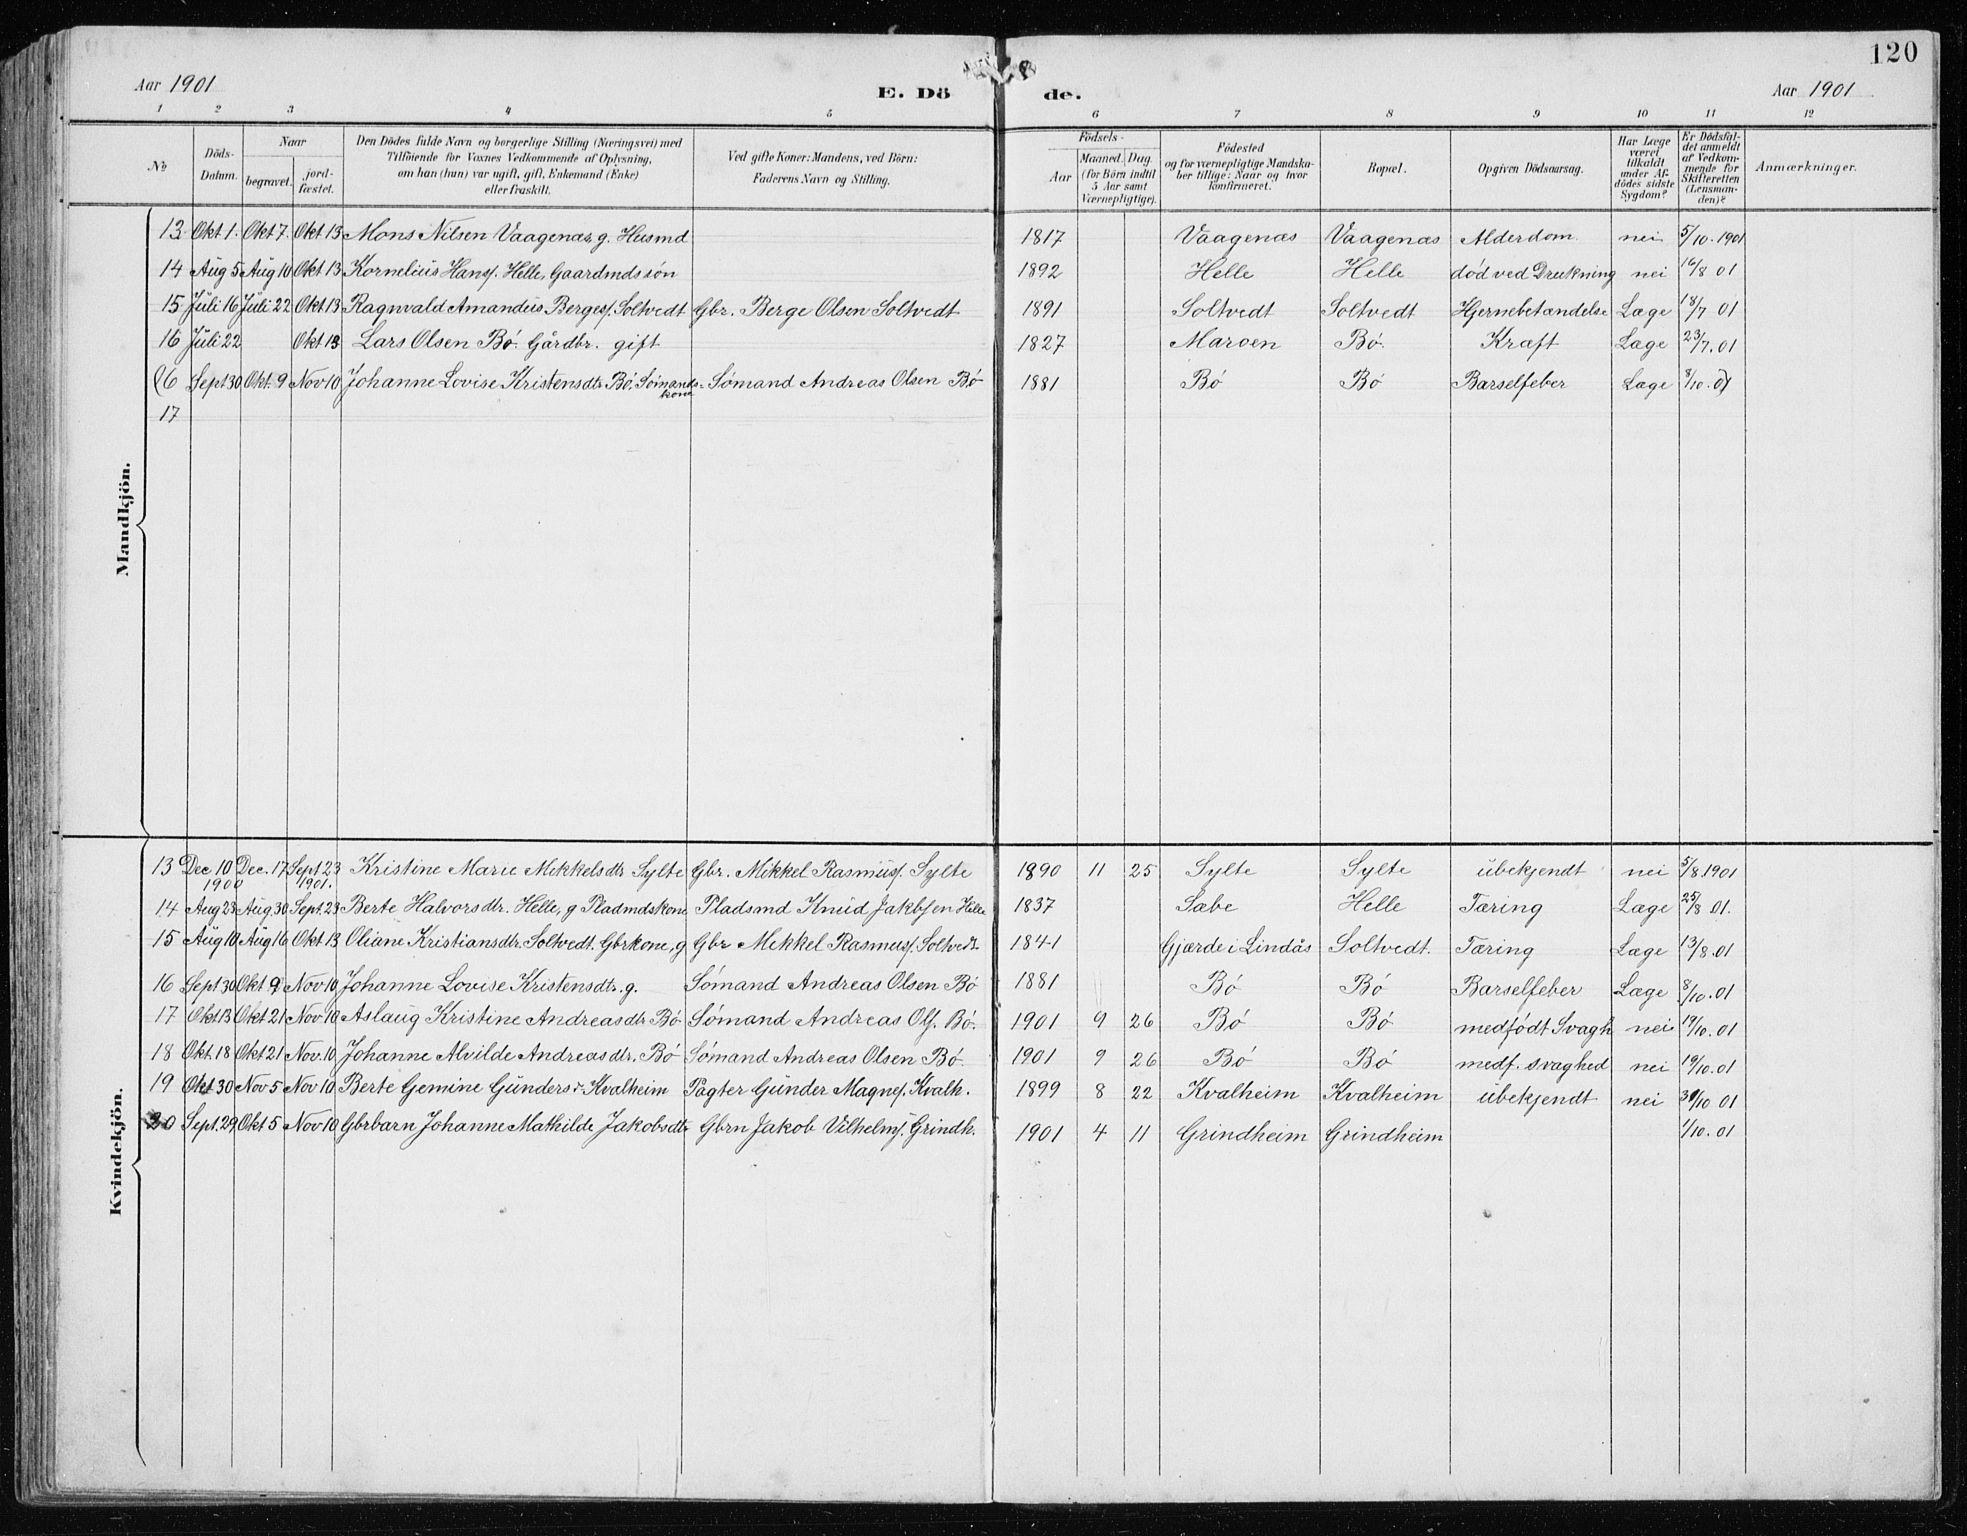 120
Aar 1901 E. Dö de. Aar 1901
1 2 3 4 5 6 7 8 9 10 11 12
No
Döds-Datum.
Naar
begravet.
jord-fæstet.
Den Dödes fulde Navn og borgerlige Stilling (Næringsvei) med
Tilföiende for Voxnes Vedkommende af Oplysning,
om han (hun) var ugift, gift, Enkemand (Enke)
eller fraskilt.
Ved gifte Koner: Mandens, ved Börn:
Faderens Navn og Stilling.
Födsels-
Aar
Maaned. Dag.
(for Börn indtil
5 Aar samt
Værnepligtige).
Födested
og for værnepligtige Mandska-
ber tillige: Naar og hvor
konfirmeret.
Bopæl.
Opgiven Dödsaarsag.
Har Læge
været
tilkaldt
under Af-
dödes sidste
Sygdom?
Er Dödsfal-
det anmeldt
af Vedkom-
mende for
Skifteretten
(Lensman-
den)?
Anmærkninger.
Mandkjön.
13 Okt 1. Okt 7. Okt 13 Mons Nilsen Vaagenæs, g. Husmd 1817 Vaagenæs Vaagenæs Alderdom nei 5/10. 1901
14 Aug 5 Aug 10 Okt 13 Kornelius Hansf. Helle, Gaardmdssön 1892 Helle Helle död ved Drukning nei 16/8 01
15 Juli 16 Juli 22 Okt 13 Ragnvald Amandus Bergesf. Soltvedt Gbr. Berge Olsen Soltvedt 1891 Soltvedt Soltvedt Hjernebetændelse Læge 18/7 01
16 Juli 22 Okt 13 Lars Olsen Bø. Gårdbr. gift 1827 Maroen Bø. Kræft Læge 23/7.01
(6 Sept 30 Okt. 9 Nov 10 Johanne Lovise Kristensdtr Bø, Sømands-kone Sømand Andreas Olsen Bø 1881 Bø Bø Barselfeber Læge 8/10.01)
17
Kvindekjön.
13 Dec 10 1900 Dec. 17 Sept 23 1901. Kristine Marie Mikkelsdtr Sylte Gbr. Mikkel Rasmusf. Sylte 1890 11 25 Sylte Sylte ubekjendt nei 5/8.1901
14 Aug 23 Aug. 30 Sept. 23 Berte Halvorsdtr. Helle, g Pladmdskone Pladsmd Knud Jakobsen Helle 1837 Sabe Helle Tæring Læge 25/8 01.
15 Aug 10 Aug 16 Okt 13 Oliane Kristiansdtr. Soltvedt. Gbrkone, g Gbr Mekkel Rasmusf. Soltvedt. 1841 Gjærde i Lindås Soltvedt. Tæring Læge 13/8.01
16 Sept 30 Okt 9 Nov 10 Johanne Lovise Kristensdtr. g. Sømand Andreas Olsen Bø 1881 Bø Bø Barselfeber Læge 8/10.01
17 Okt 13 Okt 21 Nov 10 Aslaug Kristine Andreasdtr Bø Sømand Andreas Olf. Bø. 1901 9 26 Bø Bø medfödt Svagh nei 19/10.01
18 Okt. 18 Okt 21 Nov. 10 Johanne Alvilde Andreasdtr. Bø Sømand Andreas Olsen Bø. 1901 9 26 Bø Bø medf. svaghed nei 19/10.01
19 Okt 30 Nov 5 Nov 10 Berte Gemine Gundersdr Kvalheim Pagter Gunder Magnef. Kvalh. 1899 8 22 Kvalheim Kvalheim ubekjendt nei 31/10 01
20 Sept. 29 Okt 5 Nov 10 Gbrbarn Johanne Mathilde Jakobsdtr Gbrn Jakob Vilhelmf. Grindh. 1901 4 11 Grindheim Grindheim 1/10.01